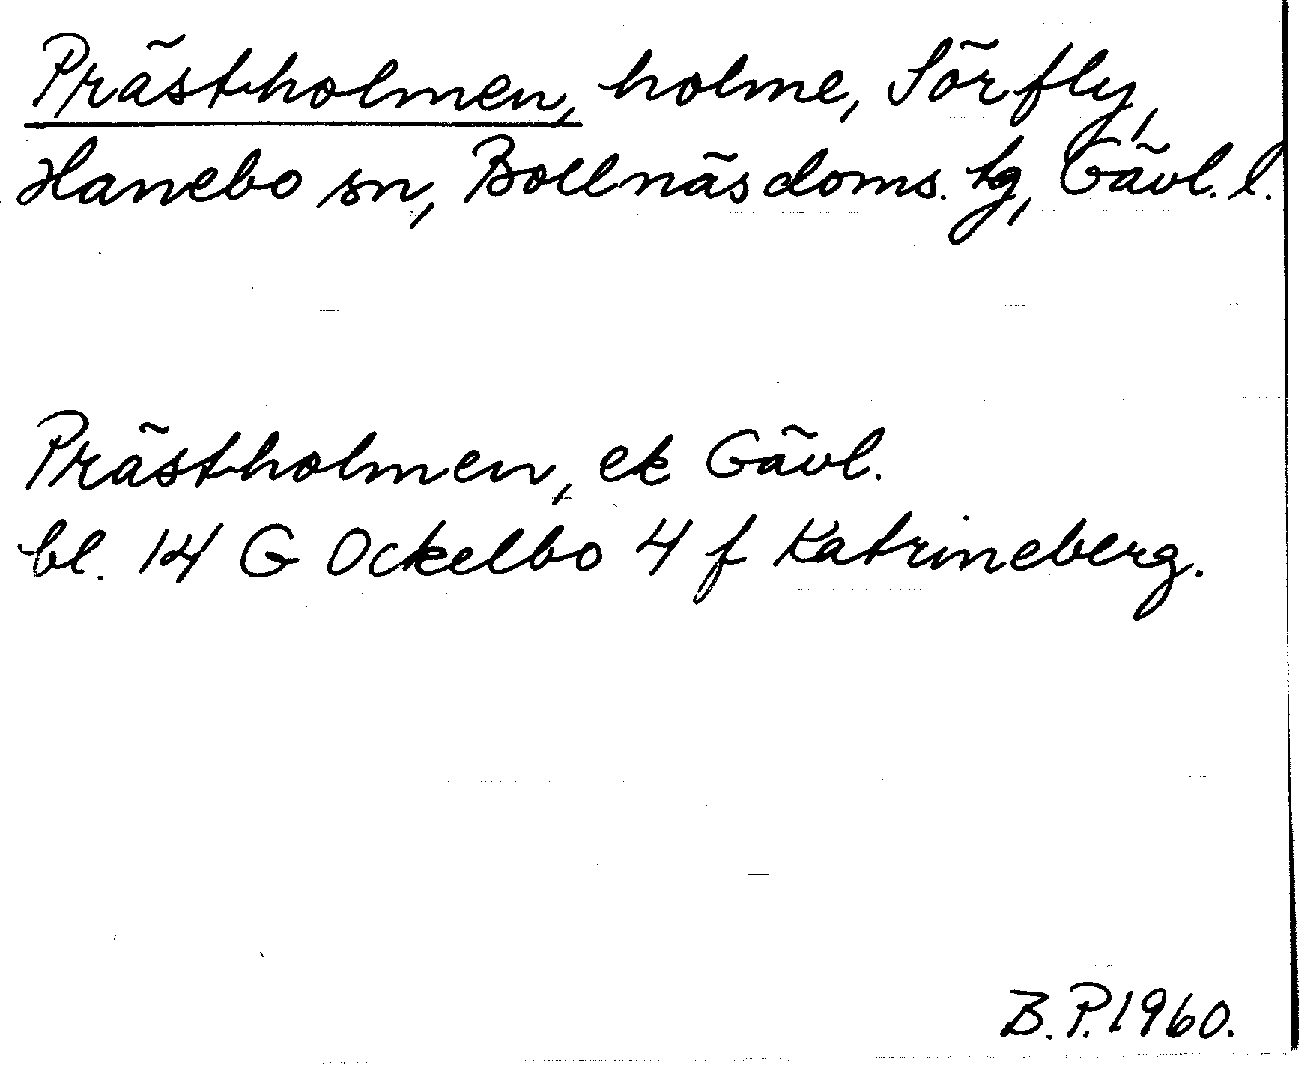 Prästholmen, holme, Sörfly,
Hanebo sn, Bollnäs doms. tg, Gävl. l.
Prästholmen, ek Gävl.
bl. 14 G Ockelbo 4 f Katrineberg.
B. P. 1960.